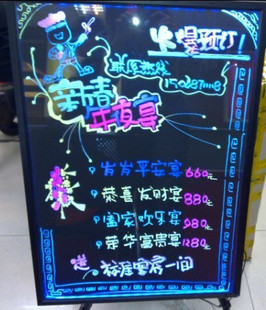 火爆预订!
联系热线
新春
年夜宴
岁岁平安宴 660元
恭喜发财宴 880元
阖家欢乐宴 980元
荣华富贵宴 1280元
送 标准客房一间